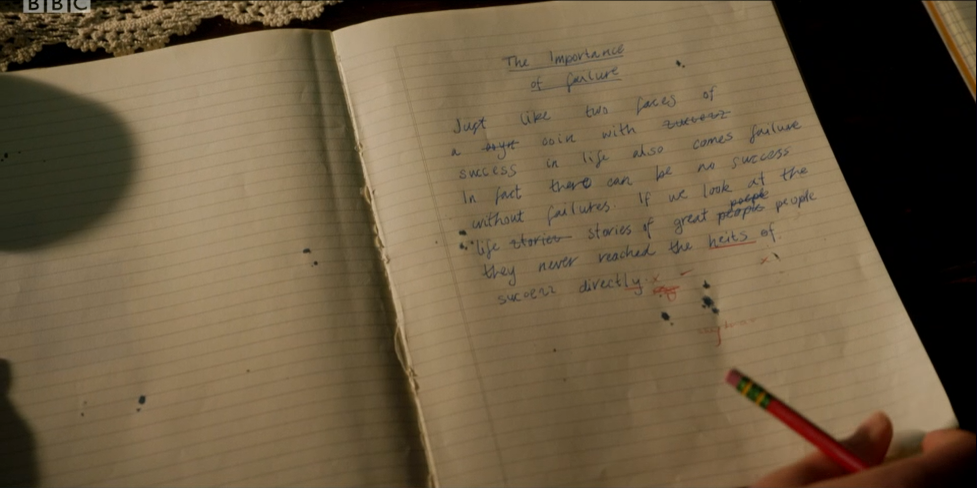 BBC
The Importance
of failure
Just like two faces of
a coin with success
success in life also comes failure
In fact there can be no success
without failures. If we look at the
life stories stories of great people people people
they never reached the heits of
success directly